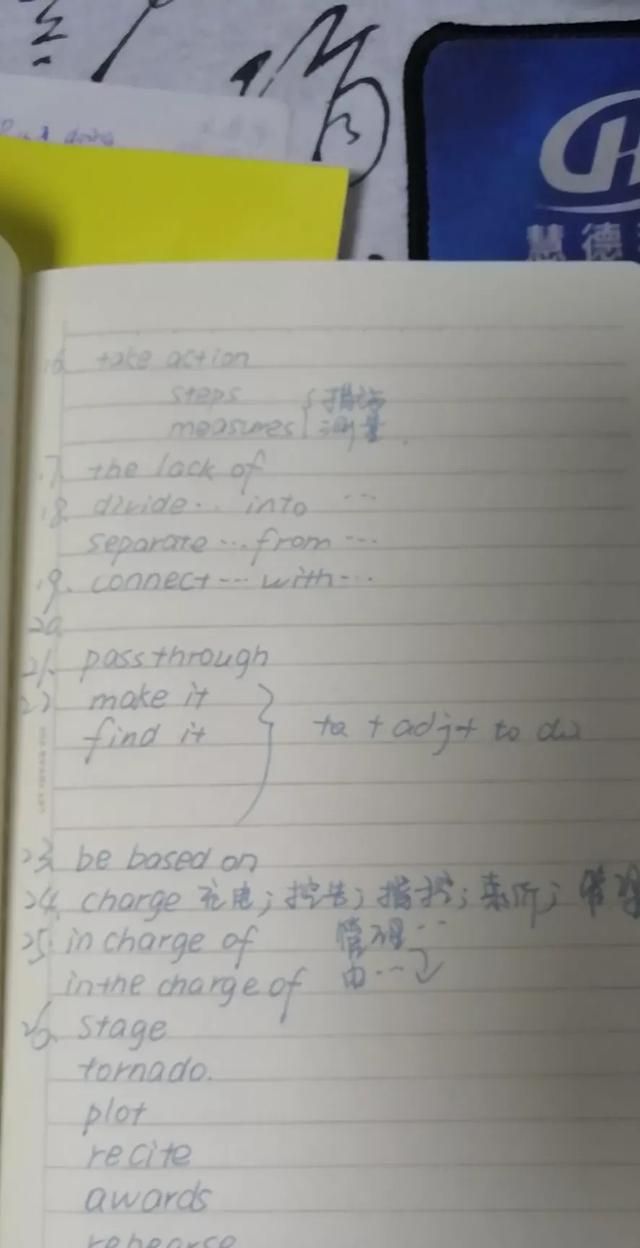 慧德
16 take action
steps 措施
measures 测量
17. the lack of
18. divide... into ...
separate ... from ...
19. connect ... with ...
20
21. pass through
22 make it
find it
+ adj + to do
23. be based on
24. charge 充电; 控告; 指控;
25. in charge of 管理...
in the charge of 由...
26. stage
tornado.
plot
recite
awards
rehearse